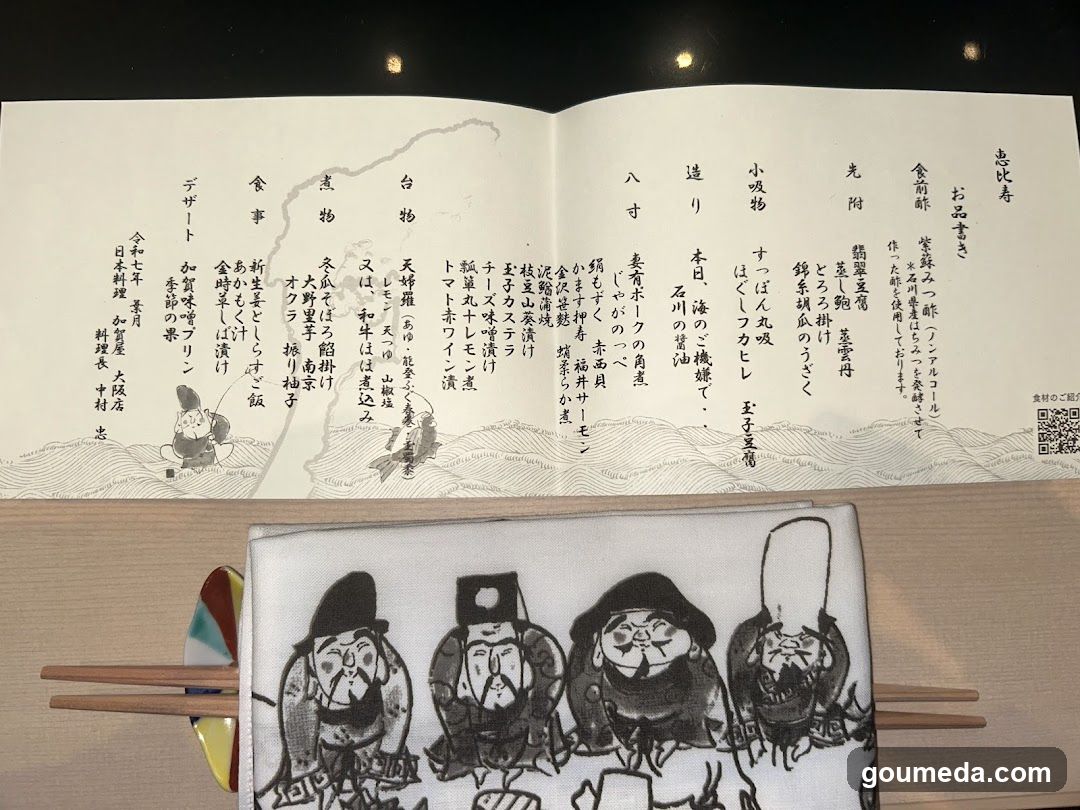 恵比寿
お品書き
食前酢 紫蘇みつ酢(ノンアルコール)
*石川県産はちみつを発酵させて
作った酢を使用しております。
先附 翡翠豆腐
蒸し鮑 蒸雲丹
とろろ掛け
錦糸胡瓜のうざく
小吸物 すっぽん丸吸
ほぐしフカヒレ 玉子豆腐
造り 本日、海のご機嫌で・・
石川の醤油
八寸 妻有ポークの角煮
じゃがのっぺ
絹もずく 赤西貝
かます押寿 福井サーモン
金沢笹麩 蛸柔らか煮
泥鰌蒲焼
枝豆山葵漬け
玉子カステラ
チーズ味噌漬け
瓢箪丸十レモン煮
トマト赤ワイン漬
台物 天婦羅(あゆ・能登ふぐ春巻・玉蜀黍)
レモン 天つゆ 山椒塩
又は、和牛ほほ煮込み
煮物 冬瓜そぼろ餡掛け
大野里芋 南京
オクラ 振り柚子
食事 新生姜としらすご飯
あかもく汁
金時草しば漬け
デザート 加賀味噌プリン
季節の果
令和七年 葉月
日本料理 加賀屋 大阪店
料理長 中村 忠
食材のご紹介
goumeda.com